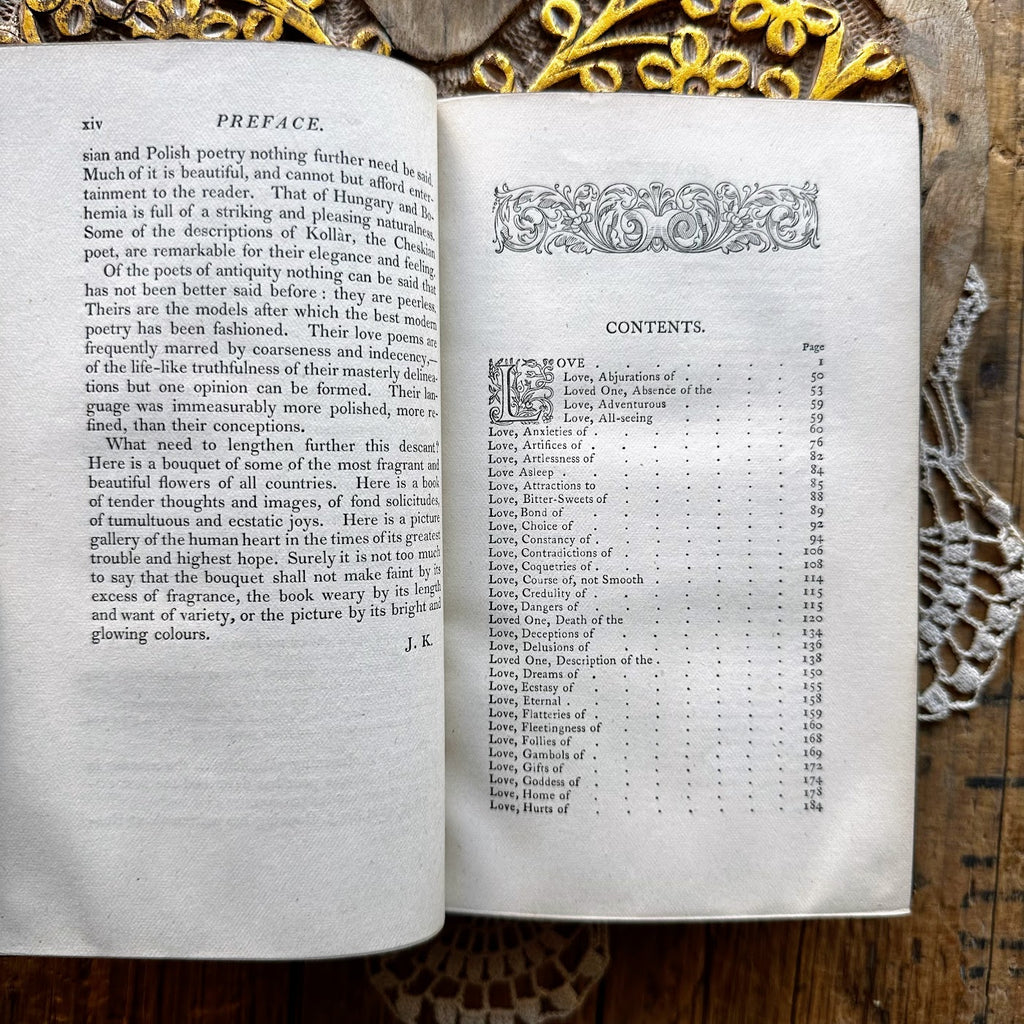 xiv PREFACE.
sian and Polish poetry nothing further need be said.
Much of it is beautiful, and cannot but afford enter-
tainment to the reader. That of Hungary and Bo-
hemia is full of a striking and pleasing naturalness.
Some of the descriptions of Kollàr, the Cheskian
poet, are remarkable for their elegance and feeling.
Of the poets of antiquity nothing can be said that
has not been better said before : they are peerless.
Theirs are the models after which the best modern
poetry has been fashioned. Their love poems are
frequently marred by coarseness and indecency,—
of the life-like truthfulness of their masterly delinea-
tions but one opinion can be formed. Their lan-
guage was immeasurably more polished, more re-
fined, than their conceptions.
What need to lengthen further this descant?
Here is a bouquet of some of the most fragrant and
beautiful flowers of all countries. Here is a book
of tender thoughts and images, of fond solicitudes,
of tumultuous and ecstatic joys. Here is a picture
gallery of the human heart in the times of its greatest
trouble and highest hope. Surely it is not too much
to say that the bouquet shall not make faint by its
excess of fragrance, the book weary by its length
and want of variety, or the picture by its bright and
glowing colours.
J. K.
CONTENTS.
Page
LOVE . . . . . . . 1
Love, Abjurations of . . . . 50
Loved One, Absence of the . . 53
Love, Adventurous . . . . 59
Love, All-seeing . . . . 59
Love, Anxieties of . . . . . . . 60
Love, Artifices of . . . . . . . 76
Love, Artlessness of . . . . . . 82
Love Asleep . . . . . . . . 84
Love, Attractions to . . . . . . 85
Love, Bitter-Sweets of . . . . . . 88
Love, Bond of . . . . . . . 89
Love, Choice of . . . . . . . 92
Love, Constancy of . . . . . . . 94
Love, Contradictions of . . . . . . 106
Love, Coquetries of . . . . . . . 108
Love, Course of, not Smooth . . . . . 114
Love, Credulity of . . . . . . . 115
Love, Dangers of . . . . . . . 115
Loved One, Death of the . . . . . 120
Love, Deceptions of . . . . . . 134
Love, Delusions of . . . . . . 136
Loved One, Description of the . . . . . 138
Love, Dreams of . . . . . . . 150
Love, Ecstasy of . . . . . . . 155
Love, Eternal . . . . . . . . 158
Love, Flatteries of . . . . . . . 159
Love, Fleetingness of . . . . . . 160
Love, Follies of . . . . . . . 168
Love, Gambols of . . . . . . . 169
Love, Gifts of . . . . . . . 172
Love, Goddess of . . . . . . . 174
Love, Home of . . . . . . . 178
Love, Hurts of . . . . . . . 184